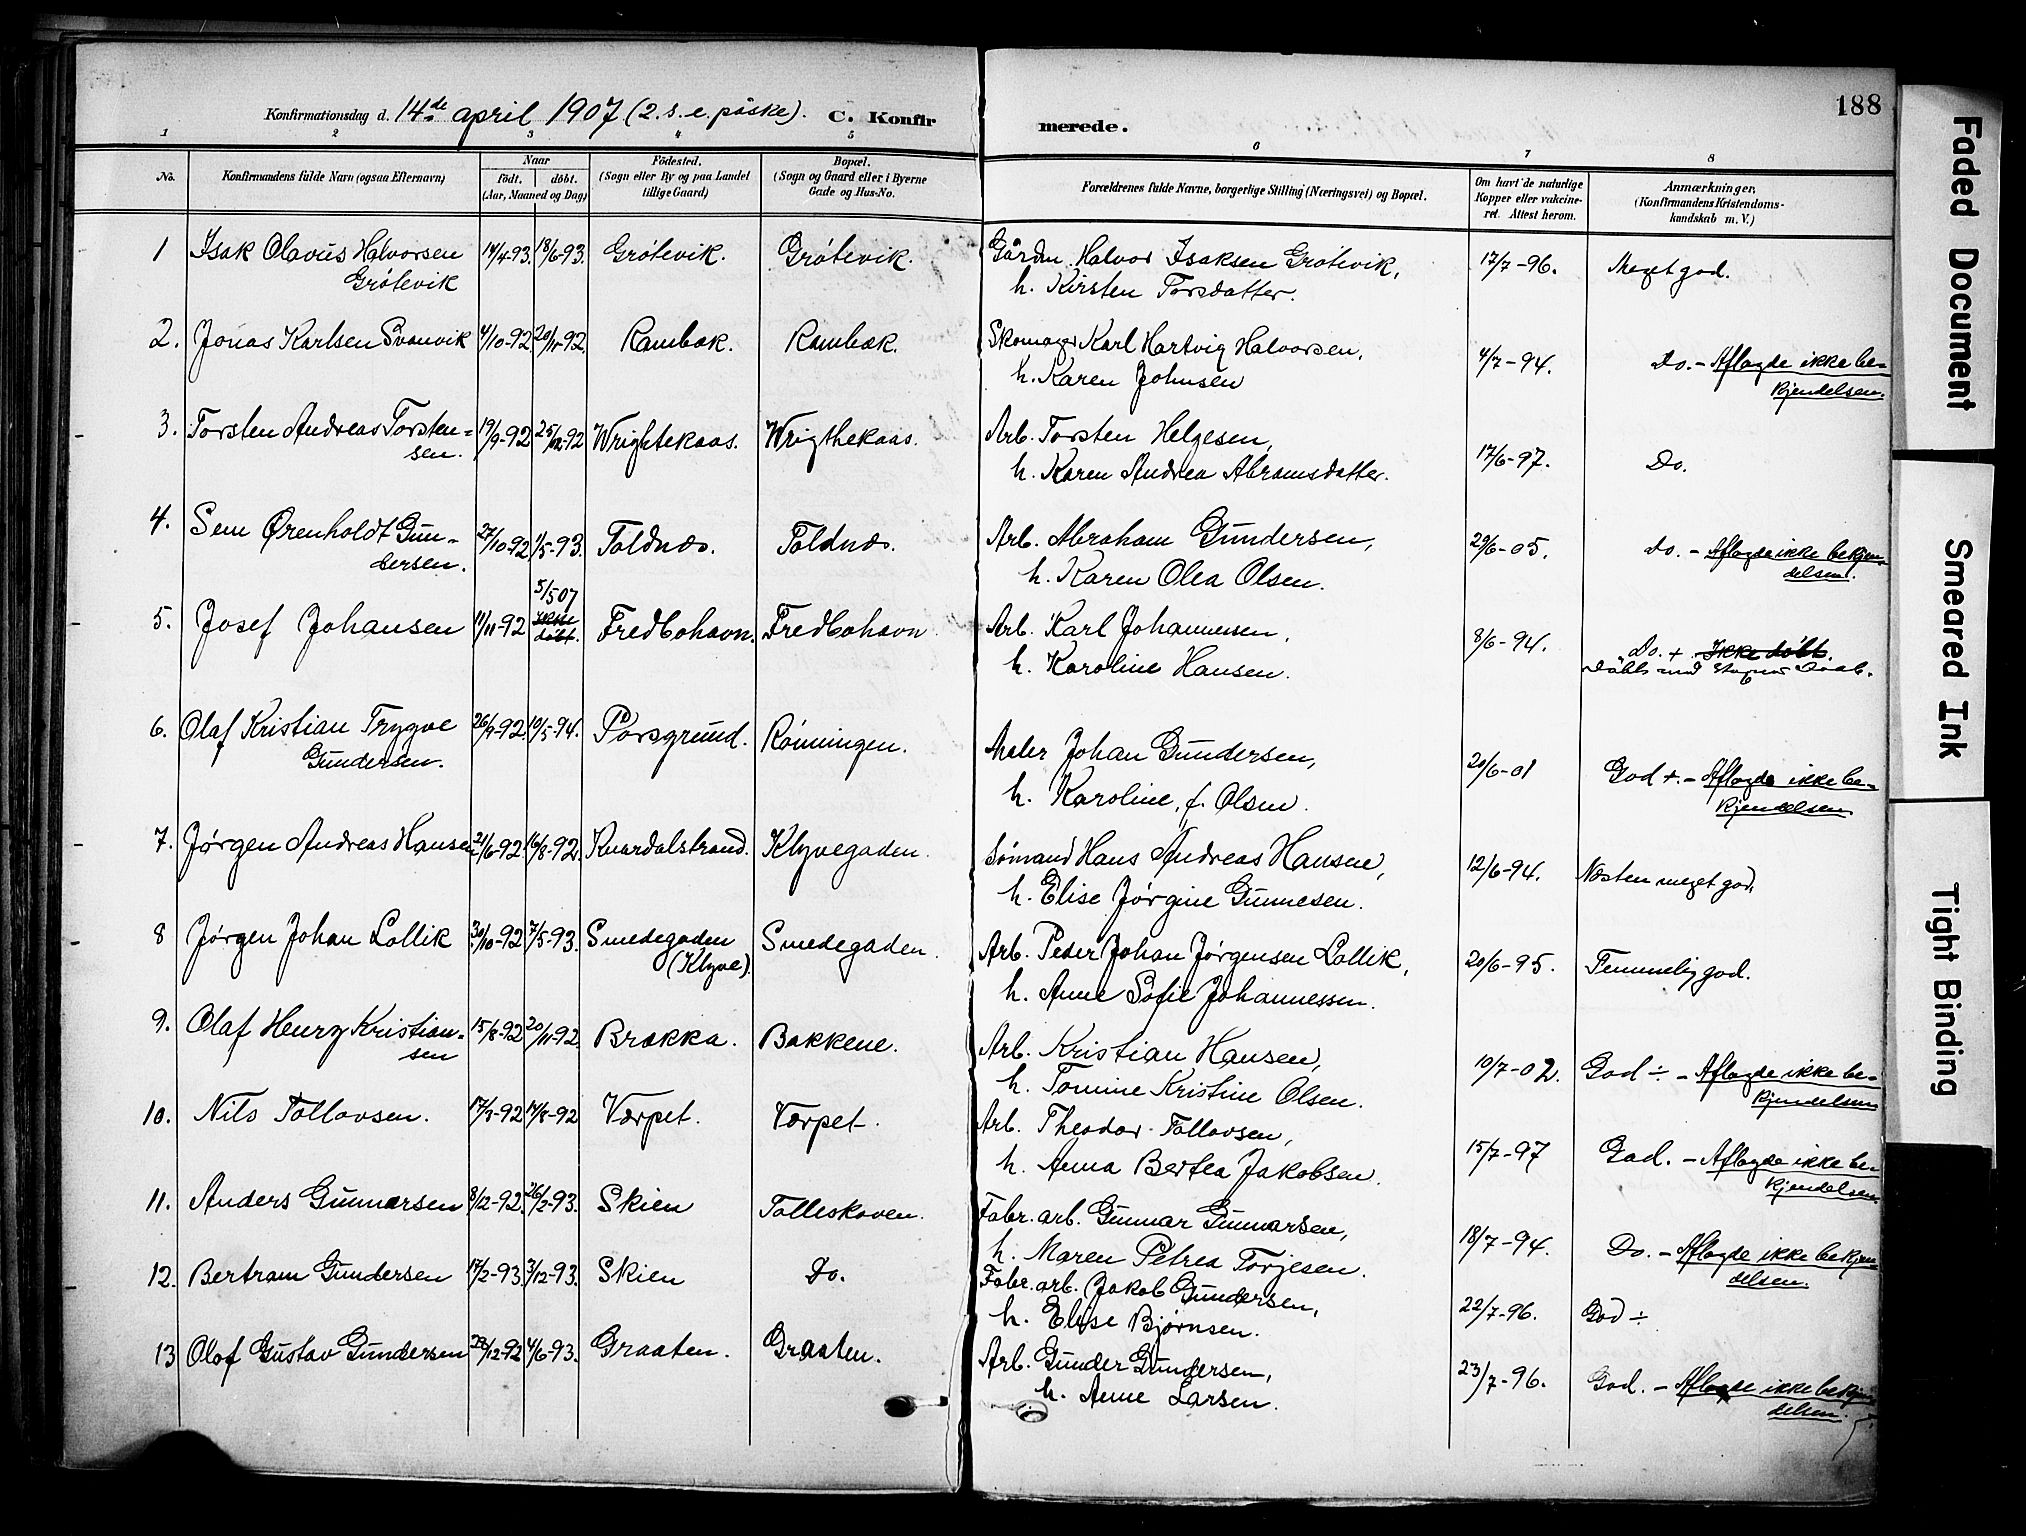 188
Konfirmationsdag d. 14de april 1907 (2. s. e. påske). C. Konfirmerede.
1 2 3 4 5 6 7 8
No. Konfirmandens fulde Navn (ogsaa Efternavn) Naar født. døbt. (Aar, Maaned og Dag) Fødested. (Sogn eller By og paa Landet tillige Gaard) Bopæl. (Sogn og Gaard eller i Byerne Gade og Hus-No. Forældrenes fulde Navne, borgerlige Stilling (Næringsvei) og Bopæl. Om havt de naturlige Kopper eller vakcineret. Attest herom. Anmærkninger, (Konfirmandens Kristendomskundskab m. V.)
1 Isak Olavus Halvorsen Grótevik 14/4-93. 18/6-93. Grótevik. Grótevik. Gårdm. Halvor Isaksen Grótevik,
h. Kirsten Torsdatter. 17/7-96. Meget god.
2. Jonas Karlsen Svanvik 4/10-92 20/11-92. Rambæk. Rambæk. Skomager Karl Hartvig Halvorsen,
h. Karen Johnsen 4/7-94. Do. - Aflagde ikke be-
kjendelsen.
3. Torsten Andreas Torsten-
sen. 19/9-92 25/12-92 Wrightekaas. Wrigthekaas. Arb. Torsten Helgesen,
h. Karen Andrea Abramsdatter. 17/6-97. Do.
4. Sem Ørenholdt Gun-
dersen. 27/10-92 1/5-93. Toldnæs. Toldnæs. Arb. Abraham Gundersen,
h. Karen Olea Olsen. 29/6-05. Do. - Aflagde ikke bekjen-
delsen.
5. Josef Johansen 11/11-92 5/5 07 Ikke døbt. Fredbohavn. Fredbohavn Arb. Karl Johannesen,
h. Karoline Hansen. 8/6-94. Do. + Ikke døbt.
6. Olaf Kristian Trygve
Gundersen. 26/9-92. 10/5-94. Porsgrund. Rönningen. Maler Johan Gundersen,
h. Karoline, f. Olsen. 20/6-01 God +. - Aflagde ikke be-
kjendelsen
7. Jørgen Andreas Hansen 21/6-92. 16/8-92. Knardalstrand. Klyvegaden. Sömand Hans Andreas Hansen,
h. Elise Jørgine Gunnesen. 12/6-94. Næsten meget god.
8 Jørgen Johan Lollik 30/10-92 7/5-93. Smedegaden
(Klyve). Smedegaden. Arb. Peder Johan Jørgensen Lollik,
h. Anne Sofie Johannessen. 20/6-95. Temmelig god.
9. Olaf Henry Kristian-
sen 15/8-92 20/11-92. Brækka. Bakkene. Arb. Kristian Hansen,
h. Tomine Kristine Olsen. 10/7-02. God ÷ - Aflagde ikke be-
kjendelsen
10. Nils Tollovsen. 17/3-92 14/8-92 Værpet. Værpet. Arb. Theodor Tollovsen,
h. Anna Bertea Jakobsen. 15/7-97 God. - Aflagde ikke be-
kjendelsen.
11. Anders Gunnarsen 8/12-92. 26/2-93. Skien Tolleskoven. Fabr. arb. Gunnar Gunnarsen,
h. Maren Petrea Torjesen. 18/7-94. Do. - Aflagde ikke bekjen-
delsen.
12. Bertram Gundersen 17/2-93. 3/12-93. Skien Do. Fabr. arb. Jakob Gundersen,
h. Elise Bjørnsen. 22/7-96. God ÷
13 Olaf Gustav Gundersen 29/12-92 4/6-93. Graaten. Graaten. Arb. Gunder Gundersen,
h. Anne Larsen. 23/7-96. God. - Aflagde ikke bekjen
delsen.
Faded Document
Smeared Ink
Tight Binding